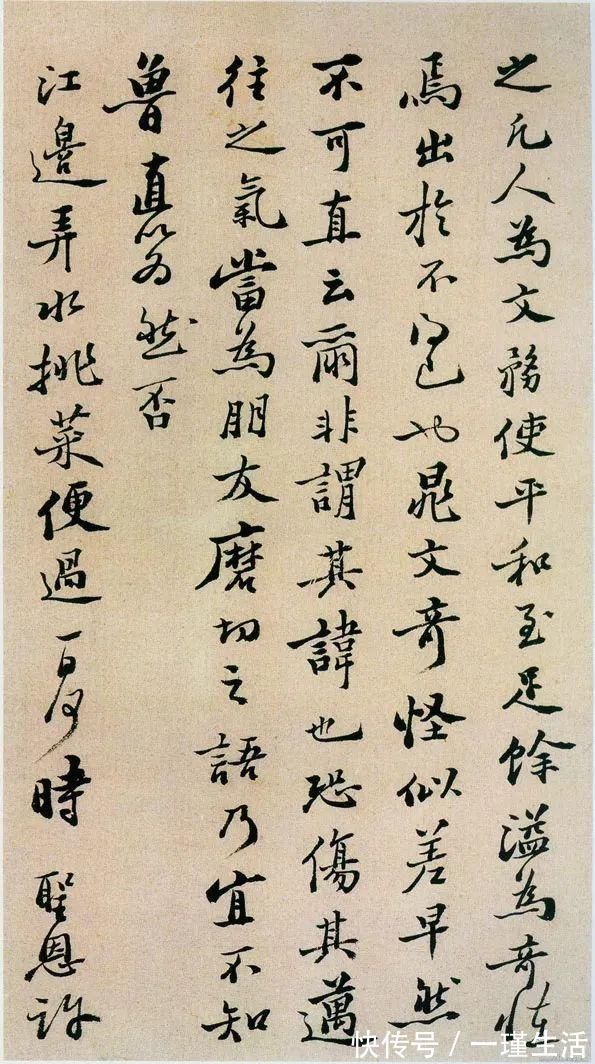 之凡人為文務使平和至足餘溢為奇怪
焉出於不得已也晁文奇怪似差早然
不可直云爾非謂其諱也恐傷其邁
往之氣當為朋友磨切之語乃宜不知
魯直以為然否
江邊弄水挑菜便過一日何時 聖恩許
快传号/一瑾生活